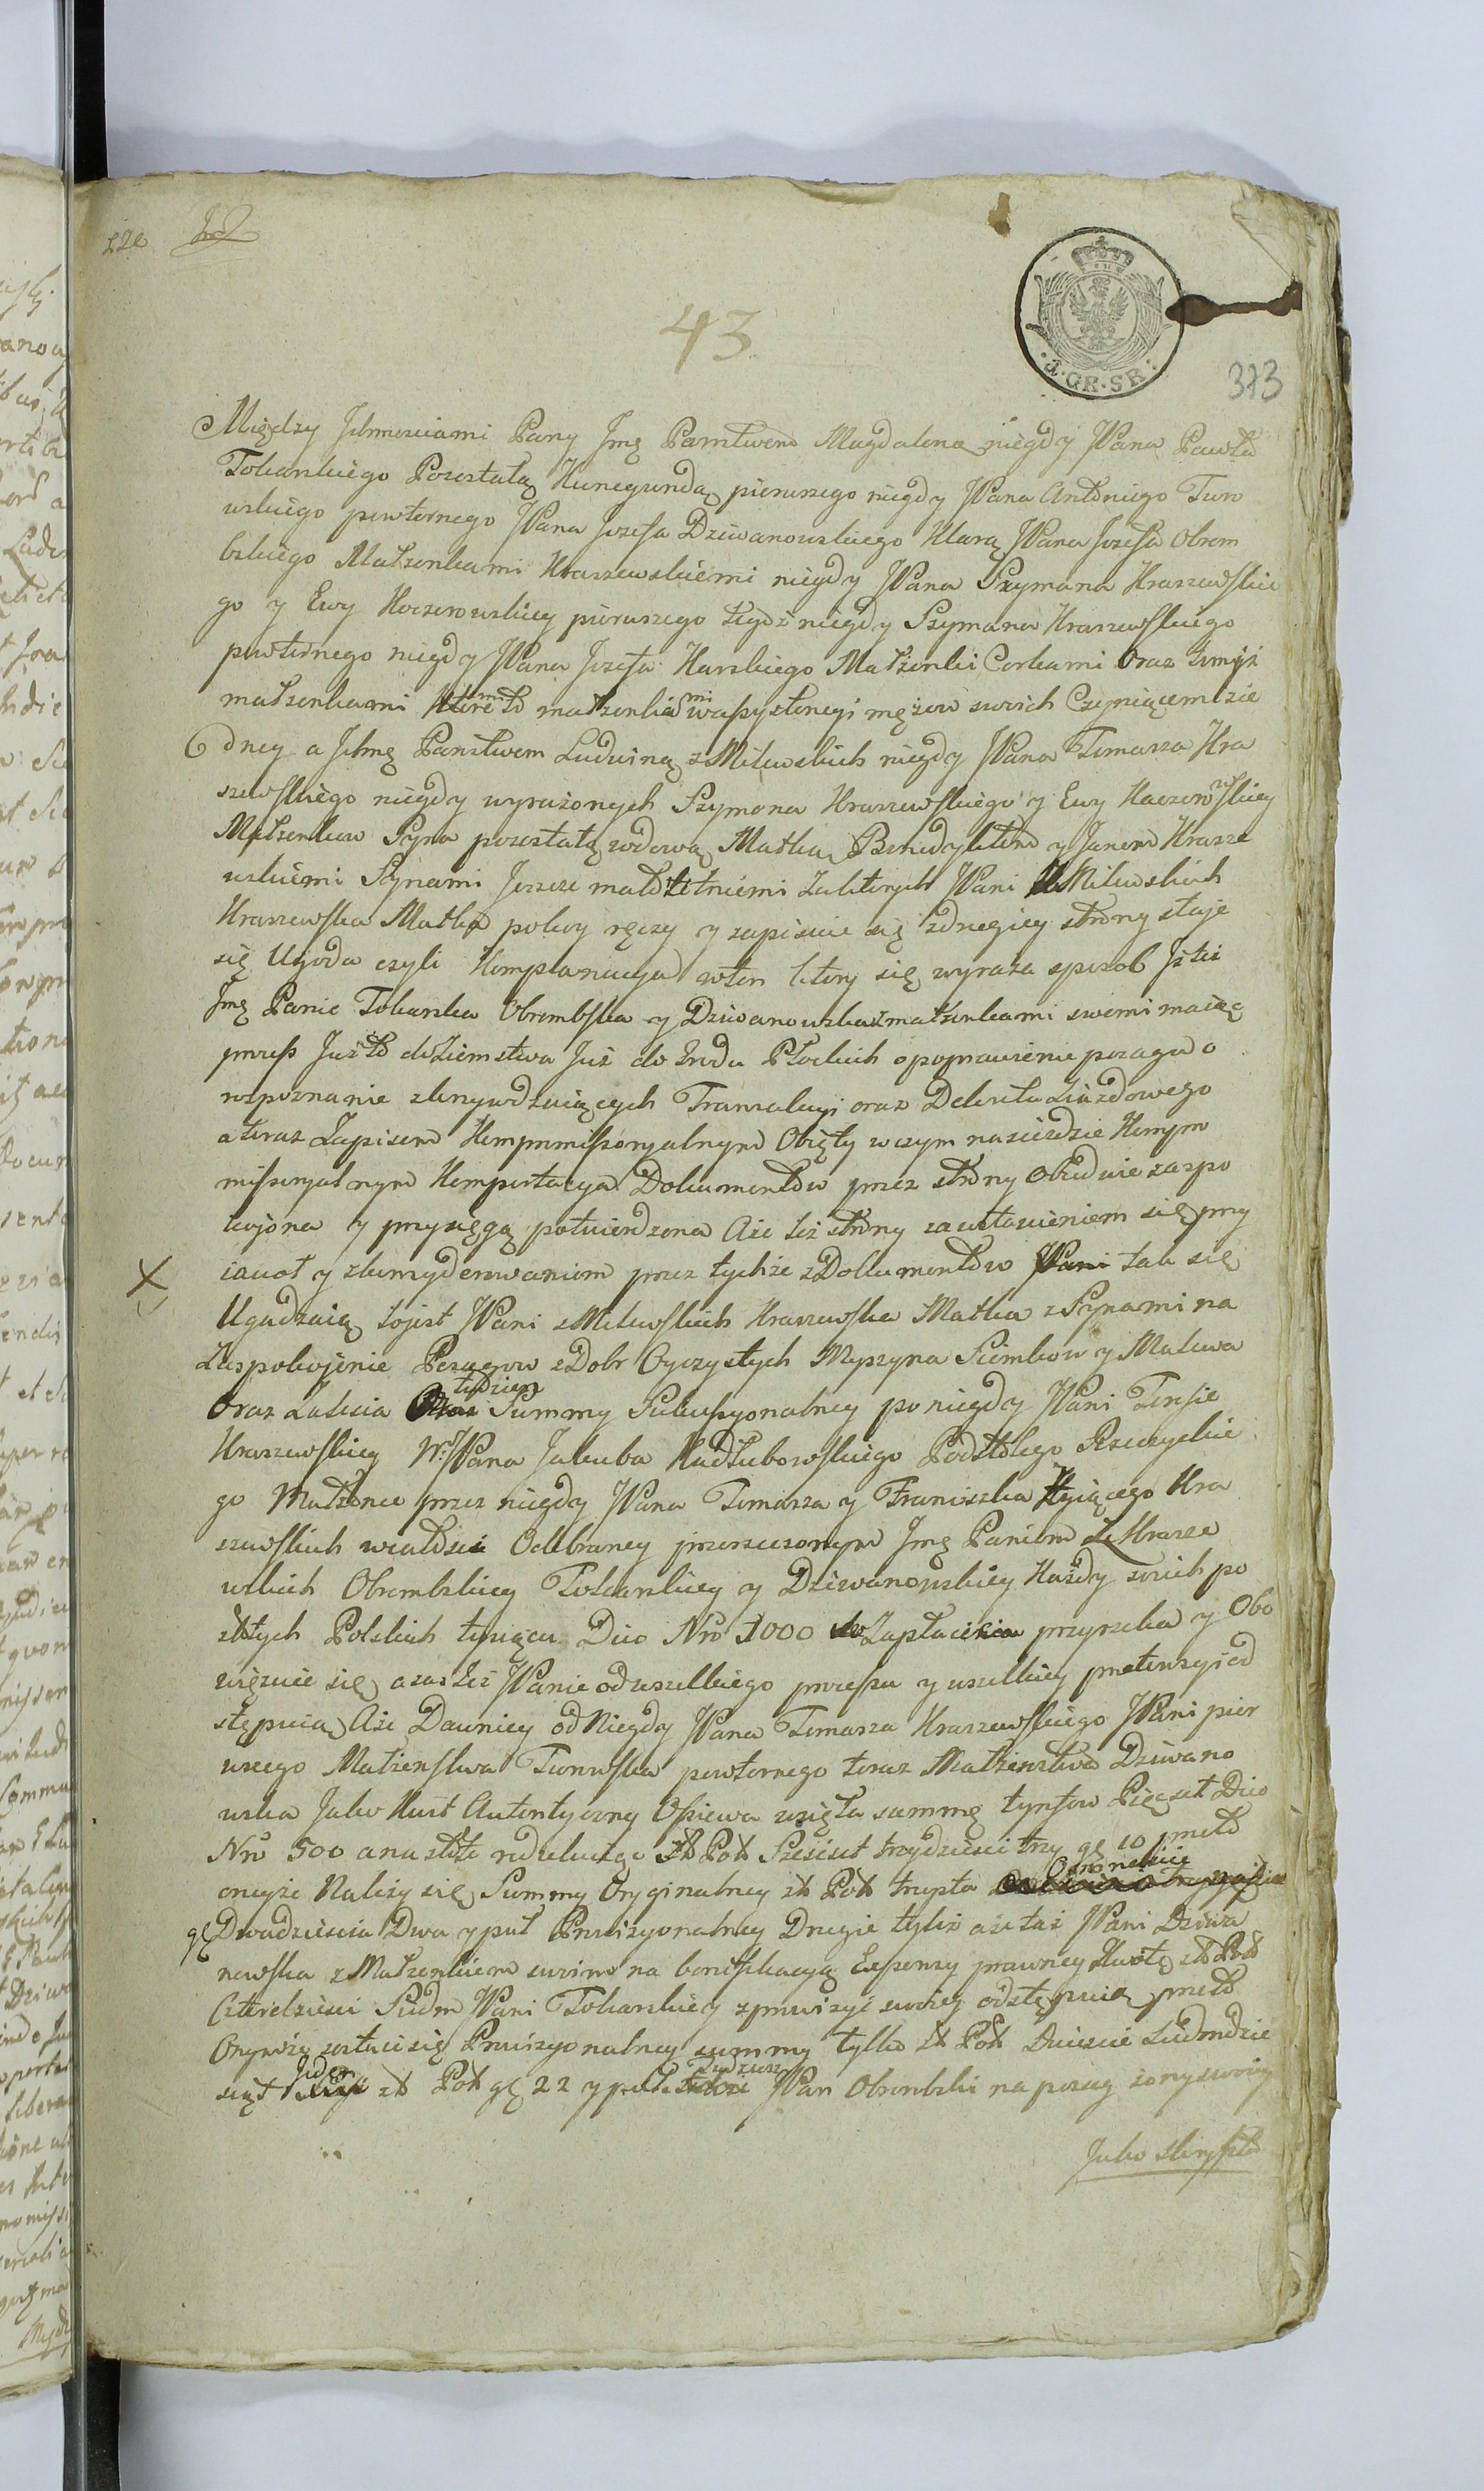 43
2.GR.SR.
373
Między Jchmosciami Pany Jmę Panstwem Magdaleną niegdy JPana Pawła
Tokarskiego Pozostałą Kunegundą pierwszego niegdy JPana Antoniego Turo
wskiego powtornego JPana Jozefa Dziwanowskiego Klarą JPana Jozefa Obrem
bskiego Małzonkami Kraszewskiemi niegdy JPana Szymana Kraszewskie
go y Ewy Koczorowskiey pierwszego tegdź niegdy Szymana Kraszewskiego
powtornego niegdy JPana Jozefa Karskiego Małżonki Corkami Oraz
małzonkami małzonkami wassystencyi mężow swoich Czyniącemi zie
dney a Jchmę Panstwem Ludwiną z Milewskich niegdy JPana Tomasza Kra
szewskiego niegdy wyrażonych Szymona Kraszewskiego y Ewy Koczorowskiey
Małzonkow Syna pozostałą wdową Matką Benedyktem y Janem Krasze
wskiemi Synami Jeszcze małoletniemi Zaktorych JPani z Milewskich
Kraszewska Matka pokoy ręczy y zapisuie się zdrugiey strony staje
się Ugoda czyli Komplanacya wten ktory się wyraża sposob Jż też
Jmę Panie Tokarska Obrembska y Dziwanowska z małzonkami swemi maiąc
process Już to do Ziemstwa Już do Grodu Płockich o poprawienie posagu o
rospoznanie zkrzywdzaiących Transakcyi oraz Dekretu Ziazdowego
a teraz Zapisem Kompromissoryalnym Obięty w czym nazieździe Kompro
missoryalnym Komportacya Dokumentow przez strony Obiedwie zaspo
kojona y przysięgą potwierdzona Aże też strony za wstawieniem się przy
iaciot y zkonsyderowaniem przez tychże z Dokumentow tak się
Ugadzaią tojest JPani z Milewskich Kraszewska Matka z Synami na
Zaspokojenie Posagow z Dobr Oyczystych Myszyna Sumbow y Malewa
Oraz Zalesia tudziesz Summy Sukcessyonalney po niegdy JPani Teresie
Kraszewskiey W. JPana Jakuba Kadłubowskiego Podstolego Rzeczyckie
go Małżonce przez niegdy JPana Tomasza y Franciszka Xięcego Kra
szewskich wcałosci Odebraney przerzeczonym Jmę Paniom Z Krasze
wskich Obrembskiey Tokarskiey y Dziewanowskiey Każdy znich po
złotych Polskich tysiącu Dico Nro 1000 Zapłacic przyrzeka y Obo
więzuie się a zaś też JPanie od wszelkiego processu y wszelkiey pretensyi od
stępuią Aże Dawniey od Niegdy JPana Tomasza Kraszewskiego JPani pier
wszego Małżenstwa Turowska powtornego teraz Małżenstwa Dziwano
wska Jako Kwit Autentyczny Opiewa wzięła summę tynfow Pięcset Dico
Nro 500 a na złote redukuiąc zł Pol Szescset trzydziesci trzy gę 10 preto
oneyże Należy się Summy Oryginalney zł Pol trzysta
gę Dwadziescia Dwa y puł Prowizyonalney Drugie tyleż aże taż JPani Dziwa
nowska z Małzonkiem swoim na bonifikacyą Expensy prawney Kwotę zł Pol
Czterdziesci Siedm JPani Tokarskiey zprowizyi swoiey odstępuie preto
Oneyże zostaie się Prowizyonalney summy tylko zł Pol Dwiescie Siedmdzie
siąt Jeden zł Pol gę 22 y puł Tudziesz JPan Obrembski na posag żony swoiey
Jako skrypta